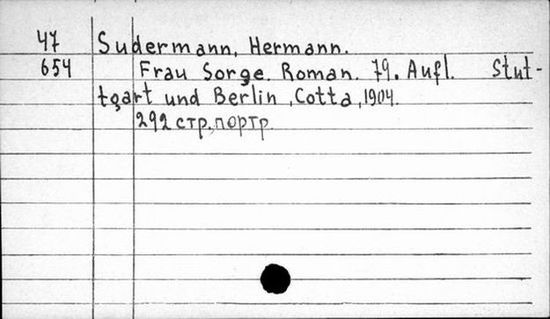 47 Sudermann, Hermann.
654 Frau Sorge. Roman. 79. Aufl. Stut-
tgart und Berlin, Cotta, 1904.
292 стр., портр.